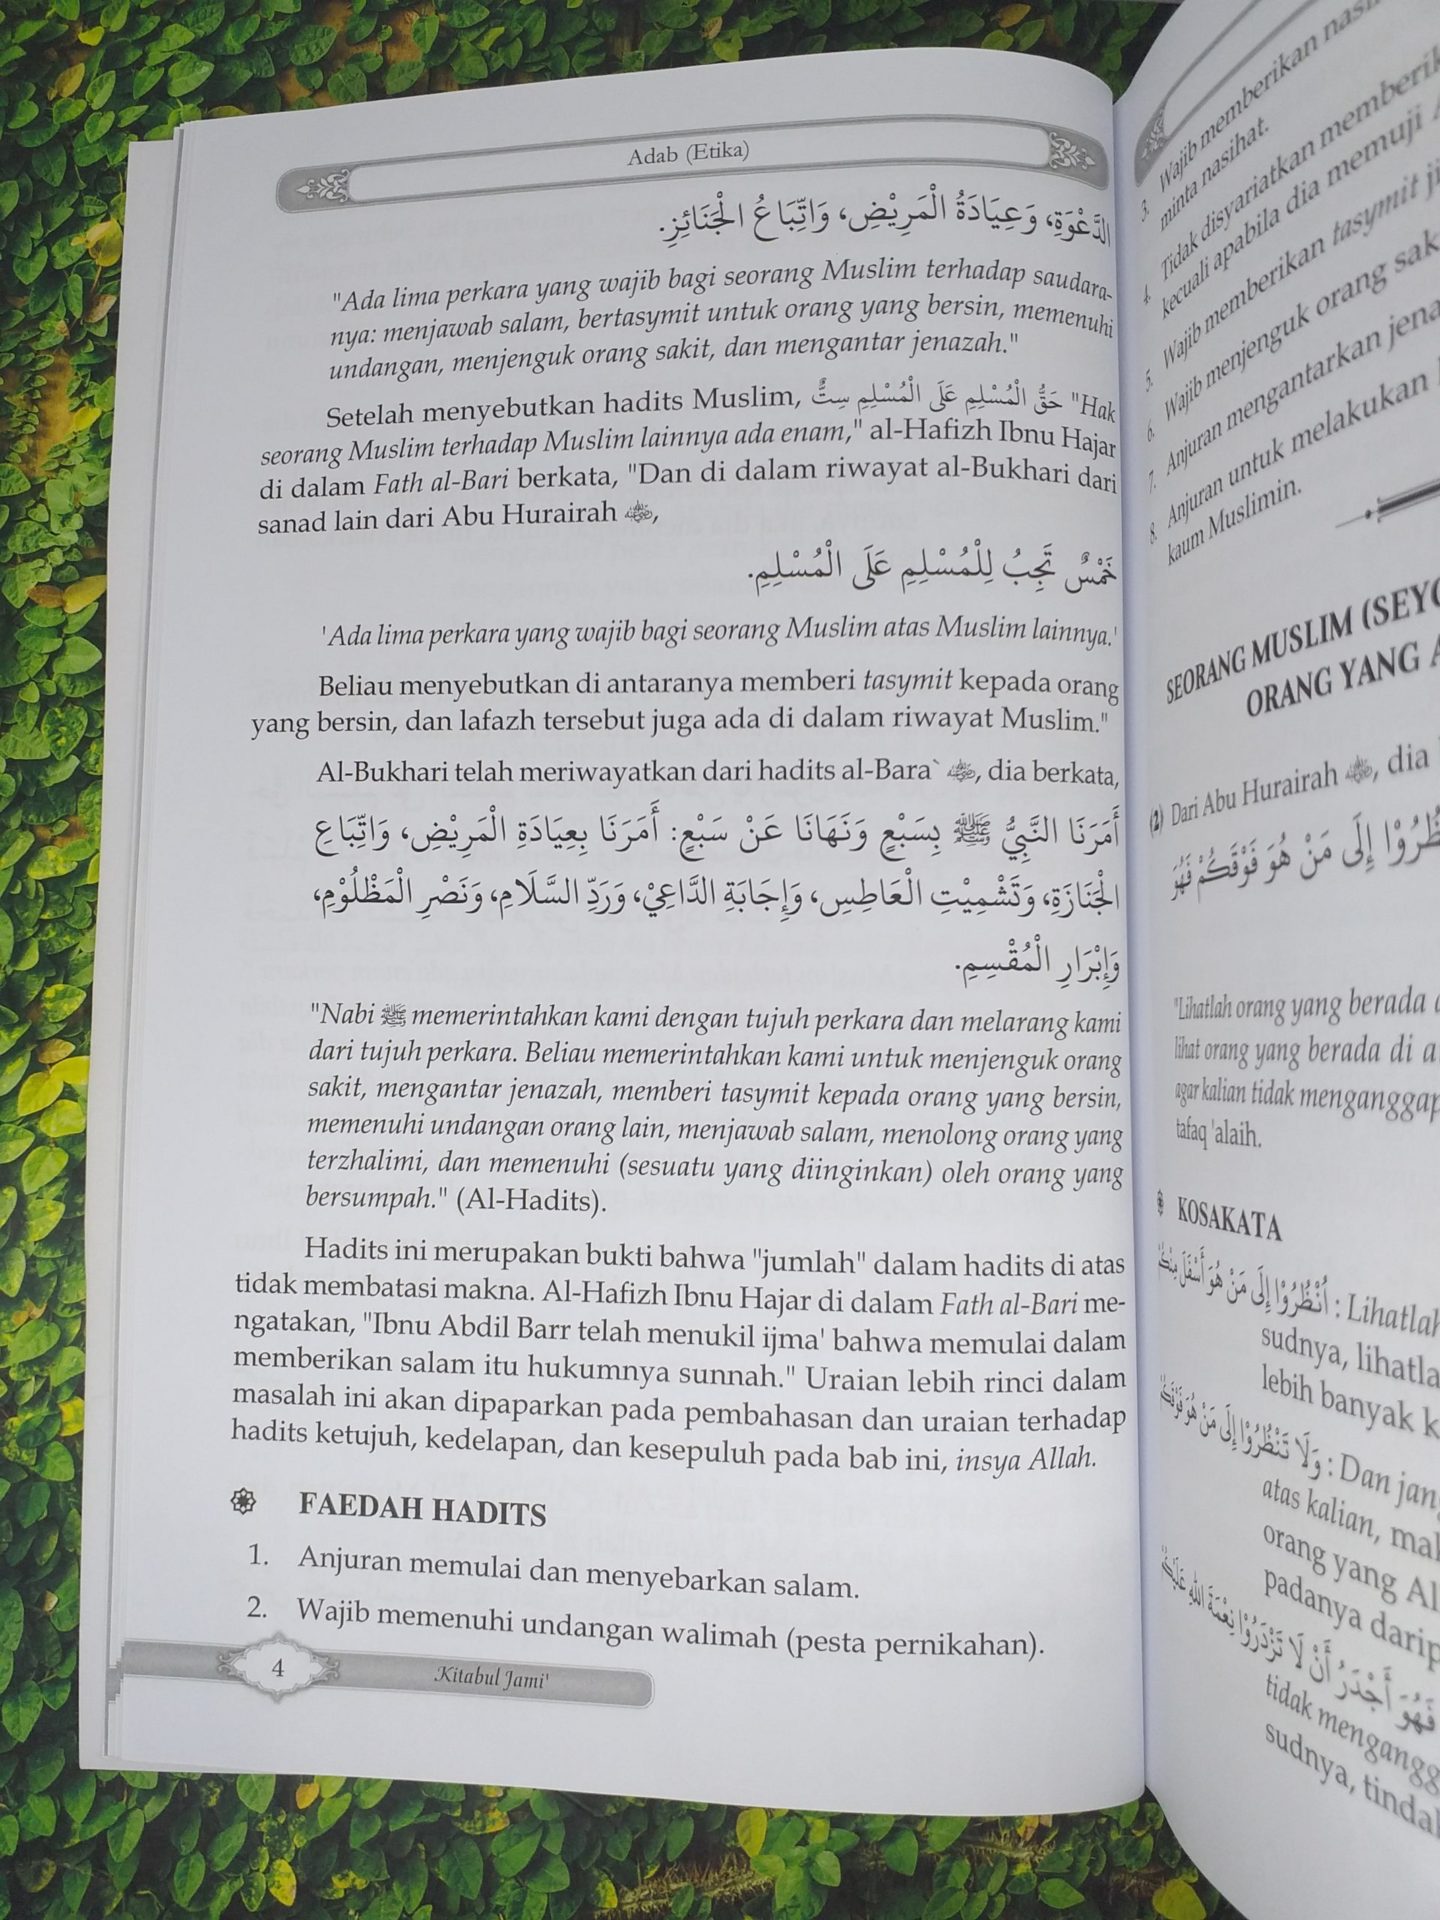 Adab (Etika)
الدَّعْوَةِ، وَعِيَادَةُ الْمَرِيْضِ، وَاتِّبَاعُ الْجَنَائِزِ.
"Ada lima perkara yang wajib bagi seorang Muslim terhadap saudara-
nya: menjawab salam, bertasymit untuk orang yang bersin, memenuhi
undangan, menjenguk orang sakit, dan mengantar jenazah."
Setelah menyebutkan hadits Muslim, حَقُّ الْمُسْلِمِ عَلَى الْمُسْلِمِ سِتٌّ "Hak
seorang Muslim terhadap Muslim lainnya ada enam," al-Hafizh Ibnu Hajar
di dalam Fath al-Bari berkata, "Dan di dalam riwayat al-Bukhari dari
sanad lain dari Abu Hurairah ﵁,
خَمْسٌ تَجِبُ لِلْمُسْلِمِ عَلَى الْمُسْلِمِ.
'Ada lima perkara yang wajib bagi seorang Muslim atas Muslim lainnya.'
Beliau menyebutkan di antaranya memberi tasymit kepada orang
yang bersin, dan lafazh tersebut juga ada di dalam riwayat Muslim."
Al-Bukhari telah meriwayatkan dari hadits al-Bara` ﵁, dia berkata,
أَمَرَنَا النَّبِيُّ ﷺ بِسَبْعٍ وَنَهَانَا عَنْ سَبْعٍ: أَمَرَنَا بِعِيَادَةِ الْمَرِيْضِ، وَاتِّبَاعِ
الْجَنَازَةِ، وَتَشْمِيْتِ الْعَاطِسِ، وَإِجَابَةِ الدَّاعِيْ، وَرَدِّ السَّلَامِ، وَنَصْرِ الْمَظْلُوْمِ،
وَإِبْرَارِ الْمُقْسِمِ.
"Nabi ﷺ memerintahkan kami dengan tujuh perkara dan melarang kami
dari tujuh perkara. Beliau memerintahkan kami untuk menjenguk orang
sakit, mengantar jenazah, memberi tasymit kepada orang yang bersin,
memenuhi undangan orang lain, menjawab salam, menolong orang yang
terzhalimi, dan memenuhi (sesuatu yang diinginkan) oleh orang yang
bersumpah." (Al-Hadits).
Hadits ini merupakan bukti bahwa "jumlah" dalam hadits di atas
tidak membatasi makna. Al-Hafizh Ibnu Hajar di dalam Fath al-Bari me-
ngatakan, "Ibnu Abdil Barr telah menukil ijma' bahwa memulai dalam
memberikan salam itu hukumnya sunnah." Uraian lebih rinci dalam
masalah ini akan dipaparkan pada pembahasan dan uraian terhadap
hadits ketujuh, kedelapan, dan kesepuluh pada bab ini, insya Allah.
FAEDAH HADITS
1. Anjuran memulai dan menyebarkan salam.
2. Wajib memenuhi undangan walimah (pesta pernikahan).
4 Kitabul Jami'
3. Wajib memberikan
minta nasihat.
4. Tidak disyariatkan
kecuali apabila dia memuji
5. Wajib memberikan tasymit
6. Wajib menjenguk orang
7. Anjuran mengantarkan
8. Anjuran untuk melakukan
kaum Muslimin.
SEORANG MUSLIM
ORANG YANG
(2) Dari Abu Hurairah ﵁, dia
إِلَى مَنْ هُوَ فَوْقَكُمْ فَهُوَ
"Lihatlah orang yang berada
lihat orang yang berada di
agar kalian tidak
tafaq 'alaih.
KOSAKATA
اُنْظُرُوْا إِلَى مَنْ هُوَ أَسْفَلَ مِنْكُمْ : Lihatlah
sudnya,
lebih banyak
وَلَا تَنْظُرُوْا إِلَى مَنْ هُوَ فَوْقَكُمْ : Dan
atas kalian,
orang yang
padanya
فَهُوَ أَجْدَرُ أَنْ لَا تَزْدَرُوْا نِعْمَةَ اللهِ عَلَيْكُمْ
tidak
sudnya,